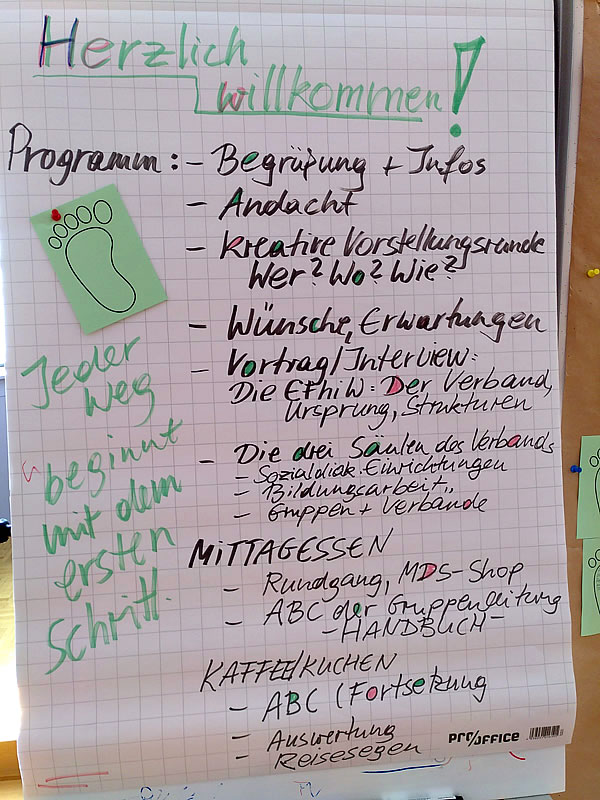 Herzlich
willkommen!
Programm: - Begrüßung + Infos
- Andacht
- Kreative Vorstellungsrunde
Wer? Wo? Wie?
- Wünsche, Erwartungen
- Vortrag/Interview:
Die EFhiW: Der Verband,
Ursprung, Strukturen
- Die drei Säulen des Verbands
- Sozialdiak. Einrichtungen
- Bildungsarbeit
- Gruppen + Verbände
MITTAGESSEN
- Rundgang, MDS-Shop
- ABC der Gruppenleitung
- HANDBUCH -
KAFFEE/KUCHEN
- ABC (Fortsetzung
- Auswertung
- Reisesegen
Jeder
Weg
beginnt
mit dem
ersten
Schritt.
PRO/OFFICE